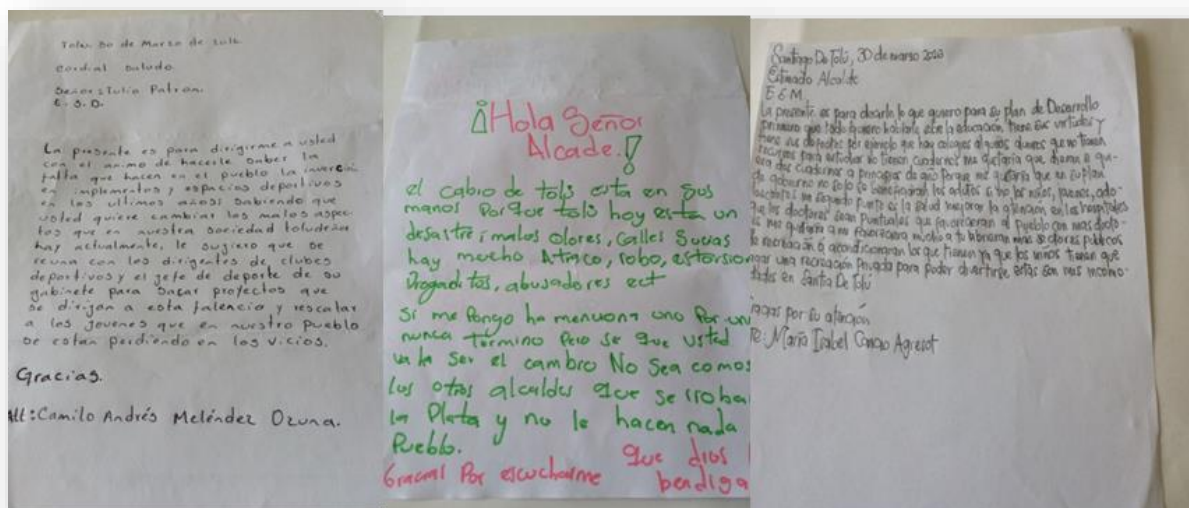 Tolú 30 de Marzo de
Cordial saludo.
Señor: Tulio Patron.
E. S. D.
La presente es para dirigirme a usted
con el animo de hacerle saber la
falta que hacen en el pueblo la inversión
en implementos y espacios deportivos
en los ultimos años: sabiendo que
usted quiere cambiar los malos aspec-
tos que en nuestra sociedad toludeña
hay actualmente, le sugiero que se
reuna con los dirigentes de clubes
deportivos y el gefe de deporte de su
gabinete para sacar proyectos que
se dirijan a esta falencia y rescatar
a los jovenes que en nuestro pueblo
se estan perdiendo en los vicios.
Gracias.
Att: Camilo Andrés Meléndez Ozuna.
¡Hola Señor
Alcade!
el cabio de tolú esta en sus
manos Porque tolú hoy esta un
desastre; malos olores, Calles Sucias
hay mucho Atraco, robo, estorsion
Drogaditos, abusadores ect
Si me Pongo ha menciona uno Por un
nunca termino Pero se que usted
va ha Ser el cambro No Sea como
los otros alcaldes que se rroba
la Plata y no le hacen nada
Pueblo.
Gracias Por escucharme que dios
bendiga
Santiago De Tolú, 30 de marzo
Estimado Alcalde
E.S.M.
La presente es para decirle lo que quiero para su plan de Desarrollo
primero que todo quiero hablarle sobre la educación tiene sus virtudes y
tiene sus defectos por ejemplo que hay colegios algunos que no tienen
recursos para estudiar no tienen cuadernos me gustaria que dieran
dos cuadernos a principios de año porque me gustaria que en su plan
de gobierno no solo se beneficiaran los adultos si no los niños, jovenes, ado-
lescentes mi segundo punto es la salud mejorar la atención en los hospitales
que los doctores sean puntuales que favorecieran al pueblo con mas docto-
me gustaria a mi favoreciera mucho a mas sectores públicos
recreación o acondicionaran los que tienen ya que los niños tienen que
pagar una recreación Privada para poder divertirse, estas son mis incomo-
didades en Santia De Tolú
por su atención
María Isabel